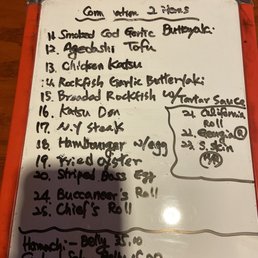 Com nation 2 items
11. Smoked Cod Garlic Butteryaki
12. Agedashi Tofu
13. Chicken Katsu
14. Rockfish Garlic Butteryaki
15. Breaded Rockfish w/Tartar Sauce
16. Katsu Don
17. N.Y Steak
18. Hamburger w/egg
19. Fried oyster
20. Striped Bass Egg
24. Buccaneer's Roll
25. Chief's Roll
21. California Roll
22. Georgia R
23. S. skin
Hamachi:- Belly 35.00